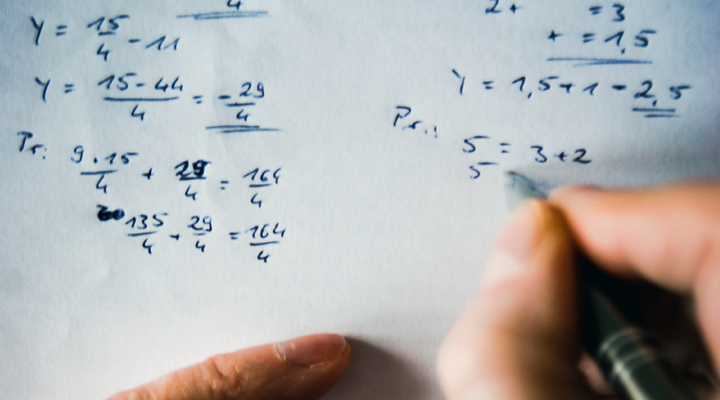 4
Y = 15/4 - 11
Y = 15-44/4 = -29/4
Pr: 9.15/4 + 29/4 = 164/4
135/4 + 29/4 = 164/4
2+ = 3
+ = 1,5
Y = 1,5+1 = 2,5
Pr.: 5 = 3+2
5